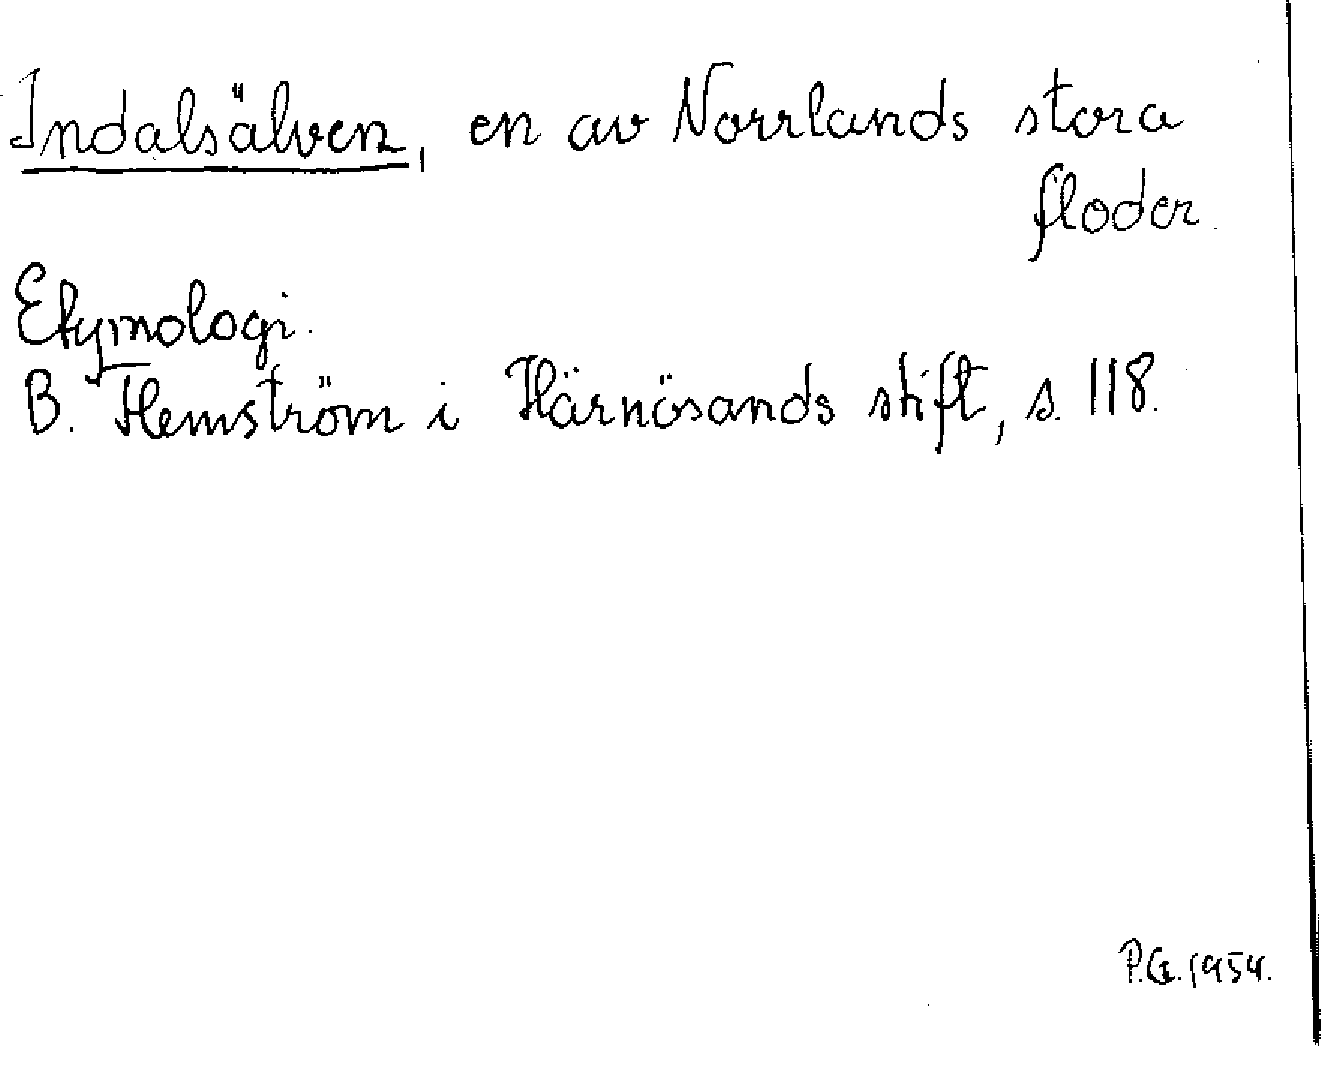 Indalsälven, en av Norrlands stora
floder.
Etymologi.
B. Hemström i Härnösands stift, s. 118.
P.G. 1954.